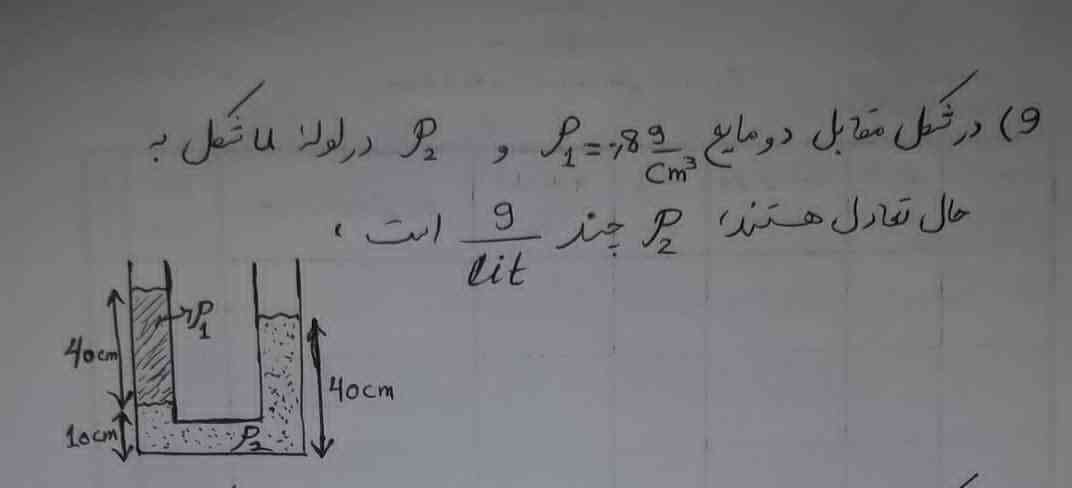 9) در شکل مقابل دو مایع ρ₁ = ۰,8 g/cm³ و ρ₂ در لولهٔ U شکل به
حال تعادل هستند، ρ₂ چند g/lit است ؛
ρ₁
40cm
40cm
10cm
ρ₂